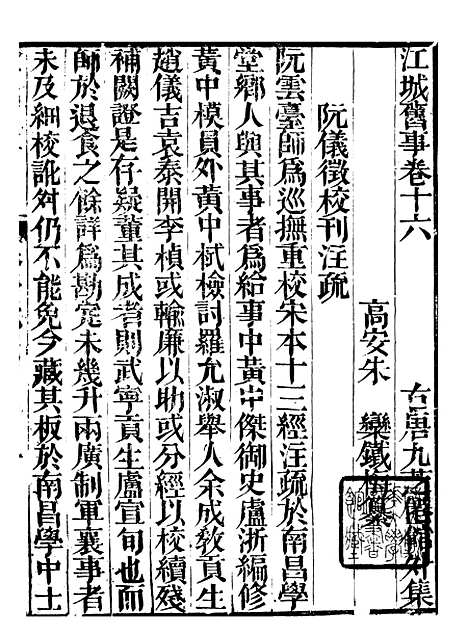 江城舊事卷十六　古唐九芝僊館外集
高安朱　欒鐵梅纂
阮儀徵校刊注疏
阮雲臺師爲巡撫重校宋本十三經注疏於南昌學
堂鄉人與其事者爲給事中黃中傑御史盧浙編修
黃中模員外黃中栻檢討羅允淑舉人余成教貢生
趙儀吉袁泰開李楨或輸廉以助或分經以校續殘
補闕證是存疑董其成者則武寧貢生盧宣旬也而
師於退食之餘詳爲勘定未幾升兩廣制軍襄事者
未及細校訛舛仍不能免今藏其板於南昌學中士